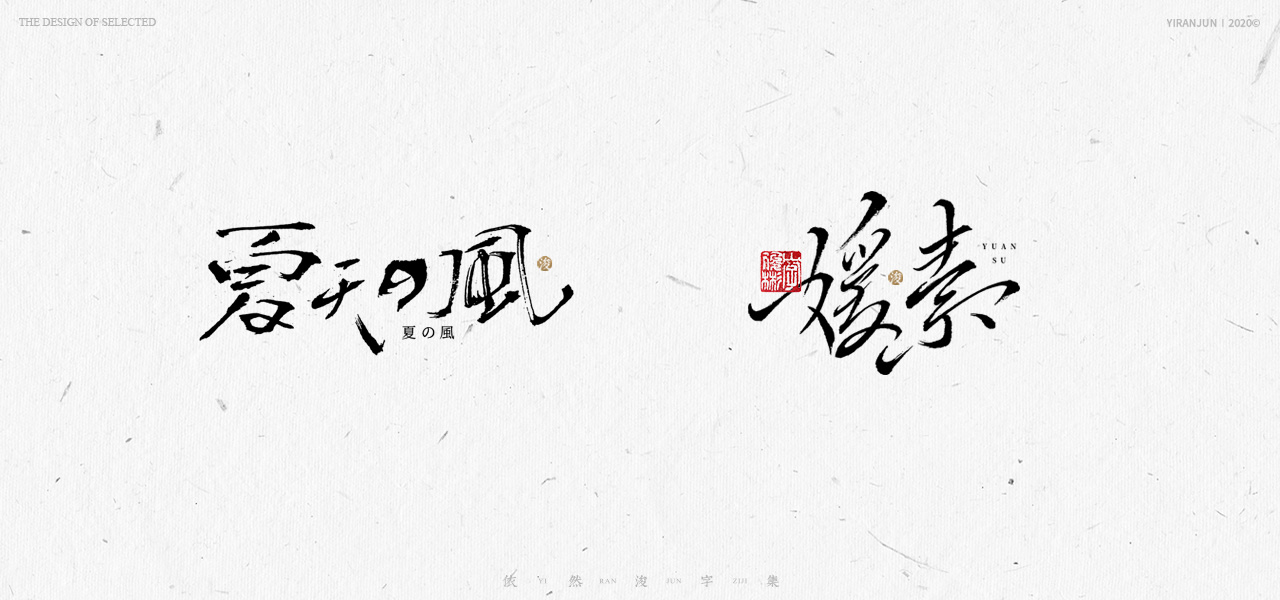 THE DESIGN OF SELECTED
YIRANJUN | 2020©
夏天の風
浚
夏の風
媛素
浚
YUAN
SU
依 YI 然 RAN 浚 JUN 字 ZIJI 集